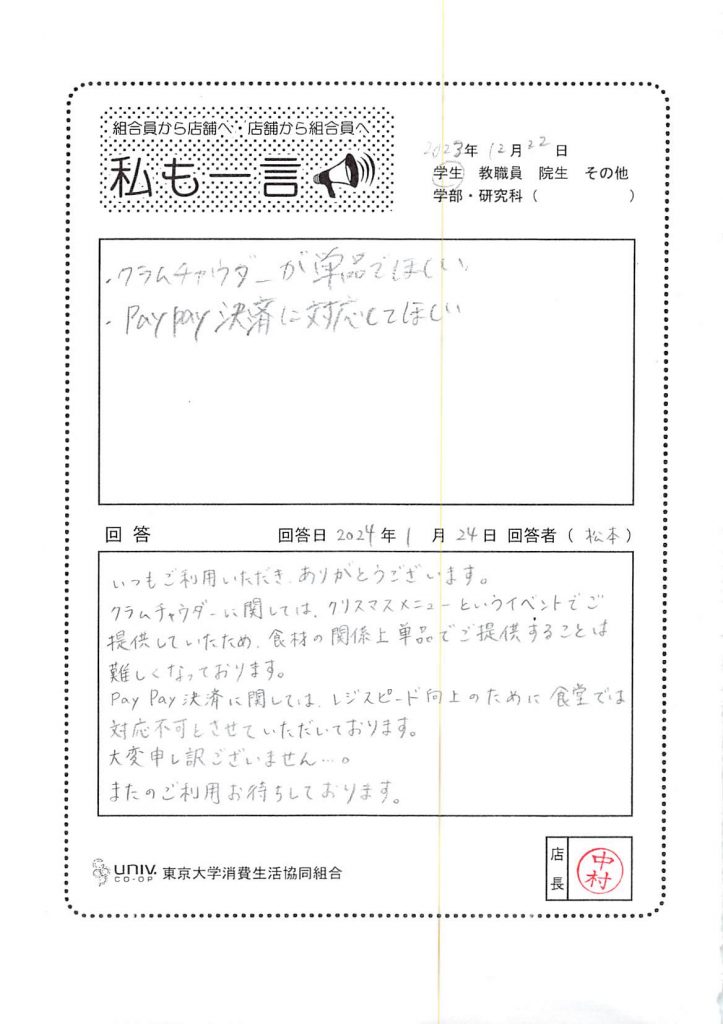 組合員から店舗へ・店舗から組合員へ
私も一言
2023年12月22日
学生 教職員 院生 その他
学部・研究科( )
・クラムチャウダーが単品でほしい
・PayPay決済に対応してほしい
回答 回答日 2024年1月24日 回答者(松本)
いつもご利用いただき、ありがとうございます。
クラムチャウダーに関しては、クリスマスメニューというイベントでご
提供していたため、食材の関係上単品でご提供することは
難しくなっております。
PayPay決済に関しては、レジスピード向上のために食堂では
対応不可とさせていただいております。
大変申し訳ございません…。
またのご利用お待ちしております。
UNIV. CO-OP 東京大学消費生活協同組合
店長 中村